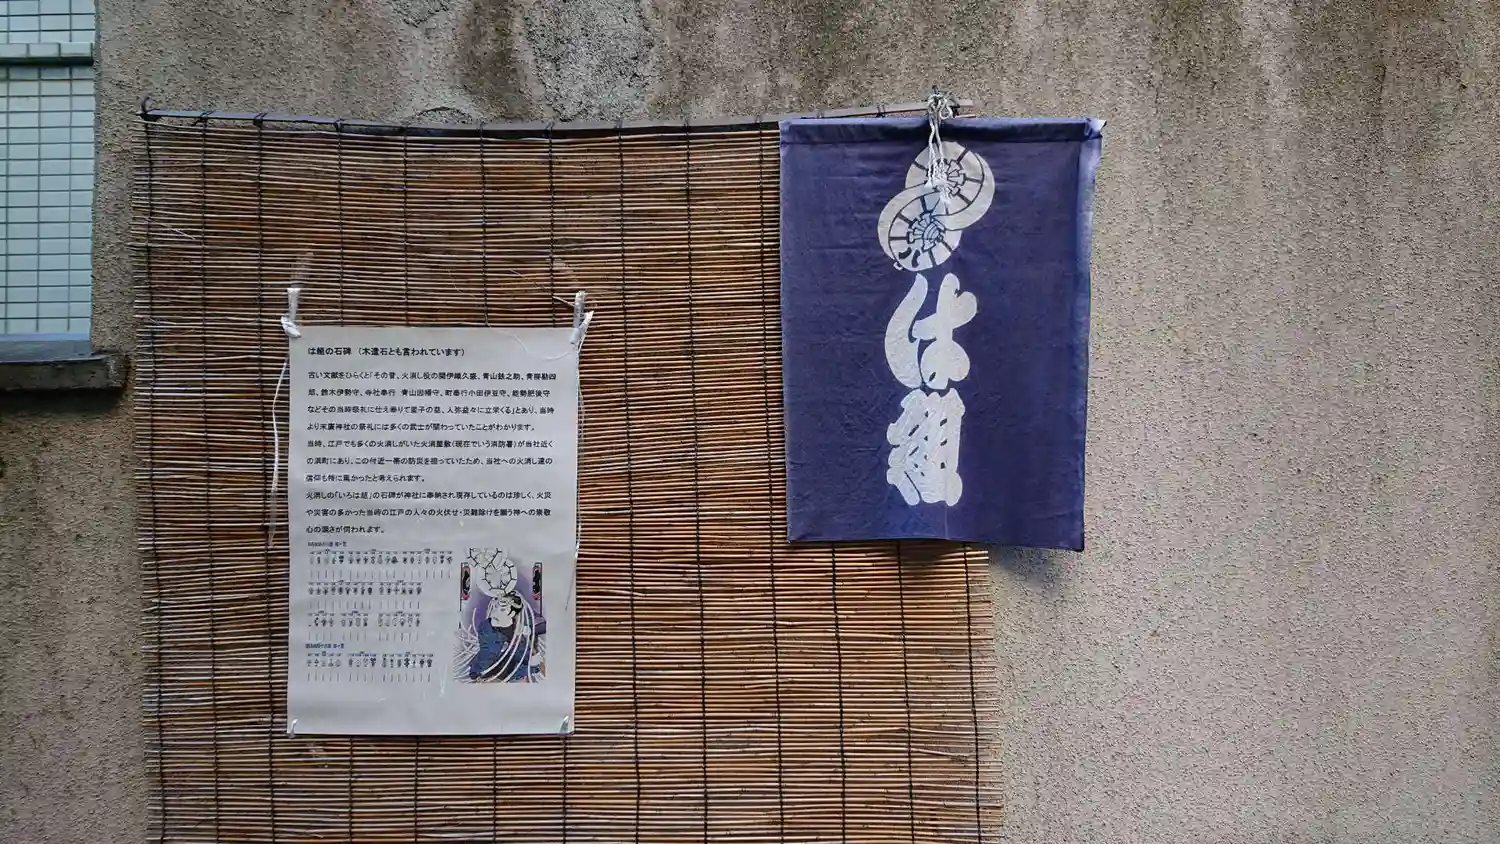 は組の石碑　（木遣石とも言われています）
古い文献をひらくと「その昔、火消し役の間伊織久盛、青山鉄之助、青柳勘四
郎、鈴木伊勢守、寺社奉行　青山因幡守、町奉行小田伊豆守、能勢肥後守
などその当時祭礼に仕え奉りて里子の益、人弥益々に立栄くる」とあり、当時
より末廣神社の祭礼には多くの武士が関わっていたことがわかります。
当時、江戸でも多くの火消しがいた火消屋敷（現在でいう消防署）が当社近く
の浜町にあり、この付近一帯の防災を担っていたため、当社への火消し達の
信仰も特に篤かったと考えられます。
火消しの「いろは組」の石碑が神社に奉納され現存しているのは珍しく、火災
や災害の多かった当時の江戸の人々の火伏せ・災難除けを願う神への崇敬
心の深さが伺われます。
は組